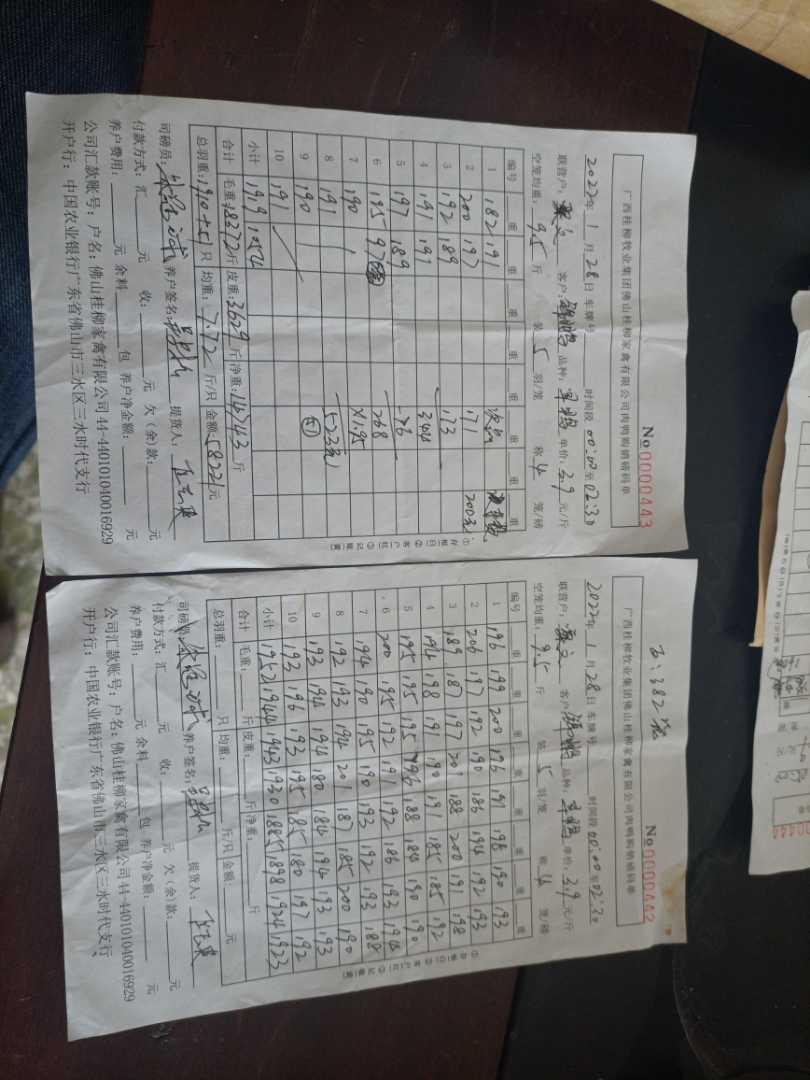 广西桂柳牧业集团佛山桂柳家禽有限公司肉鸭购销磅码单
No 0000443
2022年 1 月 28 日 车牌号 时间段 00:00 至 02:30
联营户: 客户: 品种: 单价: 3.9 元/斤
空笼均重: 9.5 斤 装 5 羽/笼 称 4 笼/磅
编号 重 重 重 重 重 重 重 重
1 182 191 次品
2 200 197 171 200元
3 192 189 173
4 191 191 344
5 197 189 -76
6 195 97 268
7 190 ×1.95
8 191 523元
9 190 51
10 191
小计 1919 1054
合计 毛重: 18372 斤 皮重: 3629 斤 净重: 14743 斤
总羽重: 1910+51 只 均重: 7.72 斤/只 金额: 58221 元
司磅员: 养户签名: 提货人:
付款方式: 汇 元 收: 元 欠(余)款: 元
养户费用: 元 余料 包 养户净金额: 元
公司汇款账号: 户名: 佛山桂柳家禽有限公司 44-440101040016929
开户行: 中国农业银行广东省佛山市三水区三水时代支行
①存根(白) ②客户(红) ③记账(黄)
382笼
广西桂柳牧业集团佛山桂柳家禽有限公司肉鸭购销磅码单
No 0000442
2022年 1 月 28 日 车牌号 时间段 00:00 至 02:30
联营户: 客户: 品种: 单价: 3.9 元/斤
空笼均重: 9.5 斤 装 5 羽/笼 称 4 笼/磅
编号 重 重 重 重 重 重 重 重
1 196 199 200 196 197 198 190 193
2 206 197 192 190 186 194 192 193
3 189 187 197 201 188 200 191 198
4 194 198 191 190 191 185 185 192
5 195 195 195 196 188 184 190 190
6 200 195 192 191 192 186 193 194
7 194 190 195 190 193 192 193 188
8 192 193 194 201 187 185 200 190
9 193 194 194 180 184 194 193 193
10 193 196 193 195 185 180 197 192
小计 1952 1944 1943 1930 1885 1898 1924 1923
合计 毛重: 斤 皮重: 斤 净重: 斤
总羽重: 只 均重: 斤/只 金额: 元
司磅员: 养户签名: 提货人:
付款方式: 汇 元 收: 元 欠(余)款: 元
养户费用: 元 余料 包 养户净金额: 元
公司汇款账号: 户名: 佛山桂柳家禽有限公司 44-440101040016929
开户行: 中国农业银行广东省佛山市三水区三水时代支行
①存根(白) ②客户(红) ③记账(黄)